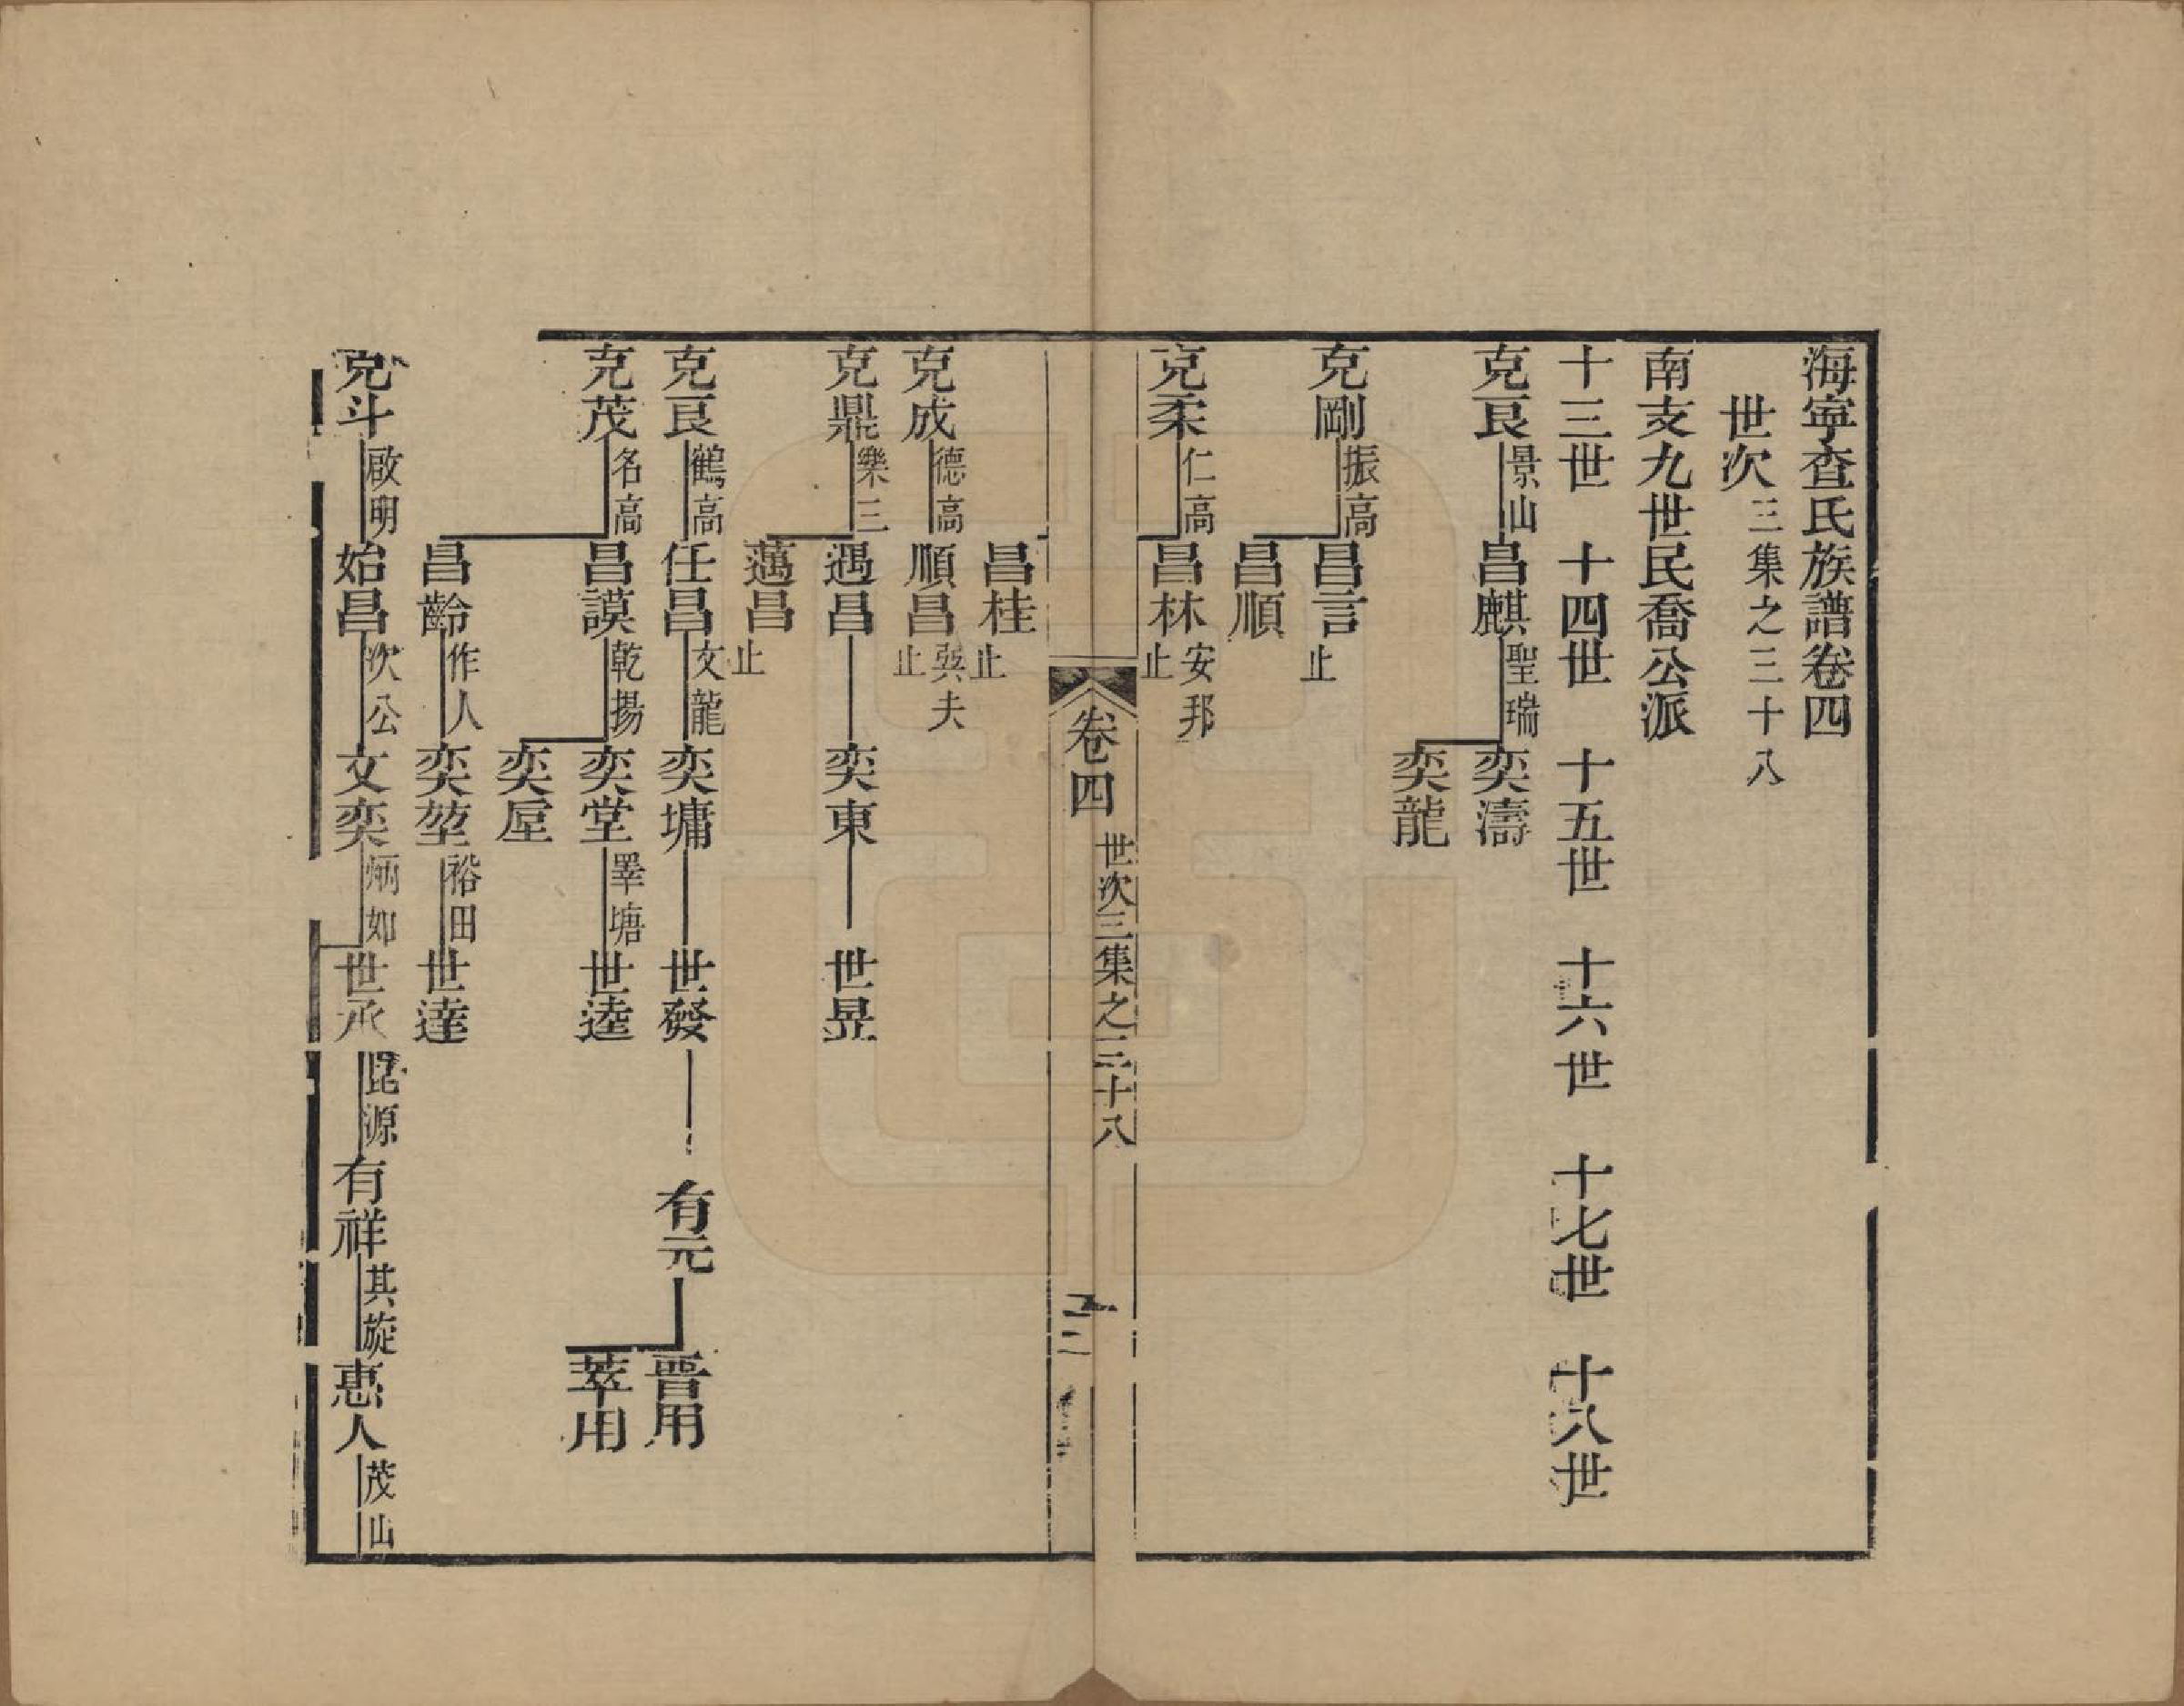 海寧查氏族譜卷四
世次三集之三十八
南支九世民喬公派
十三世 十四世 十五世 十六世 十七世 十八世
克艮 景山 昌麒 聖瑞 奕濤
奕龍
克剛 振高 昌言 止
昌順
克柔 仁高 昌林 安邦 止
卷四 世次三集之三十八
昌桂 止
克成 德高 順昌 巽夫 止
克鼎 樂三 遇昌 奕東 世昇
邁昌 止
克良 鶴高 任昌 文龍 奕墉 世發 有元 晉用
萃用
克茂 名高 昌謨 乾揚 奕堂 睪塘 世逵
奕垕
昌齡 作人 奕堃 裕田 世達
克斗 啟明 始昌 次公 文奕 炳如 世承 昆源 有祥 其旋 惠人 茂山